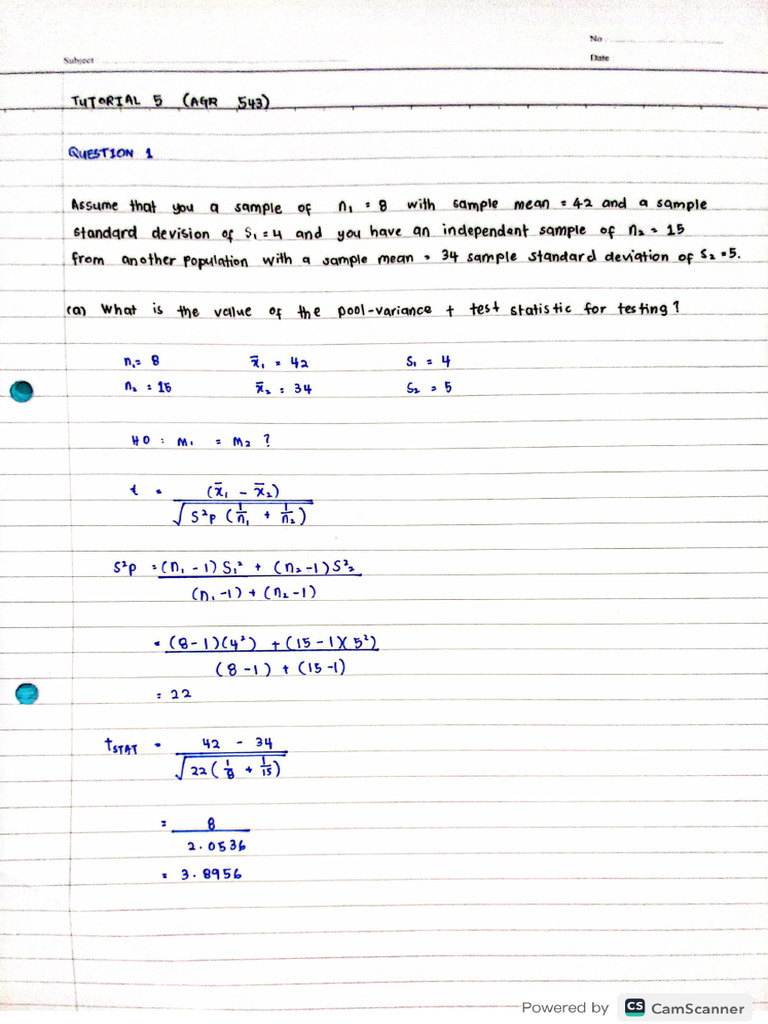 No
Subject
Date
TUTORIAL 5 (AGR 543)
QUESTION 1
Assume that you a sample of n₁ = 8 with sample mean = 42 and a sample
standard devision of S₁ = 4 and you have an independent sample of n₂ = 15
from another population with a sample mean = 34 sample standard deviation of S₂ = 5.
(a) What is the value of the pool-variance t test statistic for testing?
n₁ = 8 x̄₁ = 42 S₁ = 4
n₂ = 15 x̄₂ = 34 S₂ = 5
H0 : M₁ = M₂ ?
t = (x̄₁ - x̄₂)
√S²p (1/n₁ + 1/n₂)
S²p = (n₁ - 1) S₁² + (n₂ - 1) S²₂
(n₁ - 1) + (n₂ - 1)
= (8 - 1)(4²) + (15 - 1)(5²)
(8 - 1) + (15 - 1)
= 22
tSTAT = 42 - 34
√22 (1/8 + 1/15)
= 8
2.0536
= 3.8956
Powered by CS CamScanner